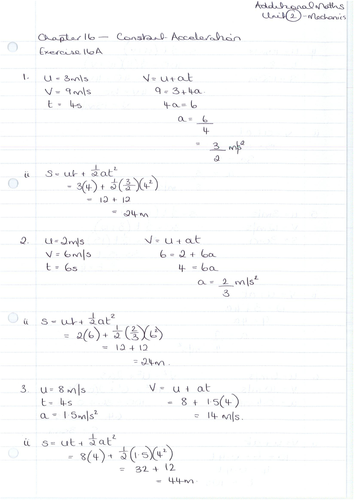 Additional Maths
Unit 2 - Mechanics
Chapter 16 — Constant Acceleration
Exercise 16A
1. u = 3m/s V = u + at
V = 9m/s 9 = 3 + 4a
t = 4s 4a = 6
a = 6/4
= 3/2 m/s²
ii S = ut + 1/2 at²
= 3(4) + 1/2 (3/2)(4²)
= 12 + 12
= 24m
2. u = 2m/s V = u + at
V = 6m/s 6 = 2 + 6a
t = 6s 4 = 6a
a = 2/3 m/s²
ii S = ut + 1/2 at²
= 2(6) + 1/2 (2/3)(6²)
= 12 + 12
= 24m.
3. u = 8m/s V = u + at
t = 4s = 8 + 1.5(4)
a = 1.5m/s² = 14 m/s.
ii S = ut + 1/2 at²
= 8(4) + 1/2 (1.5)(4²)
= 32 + 12
= 44m.